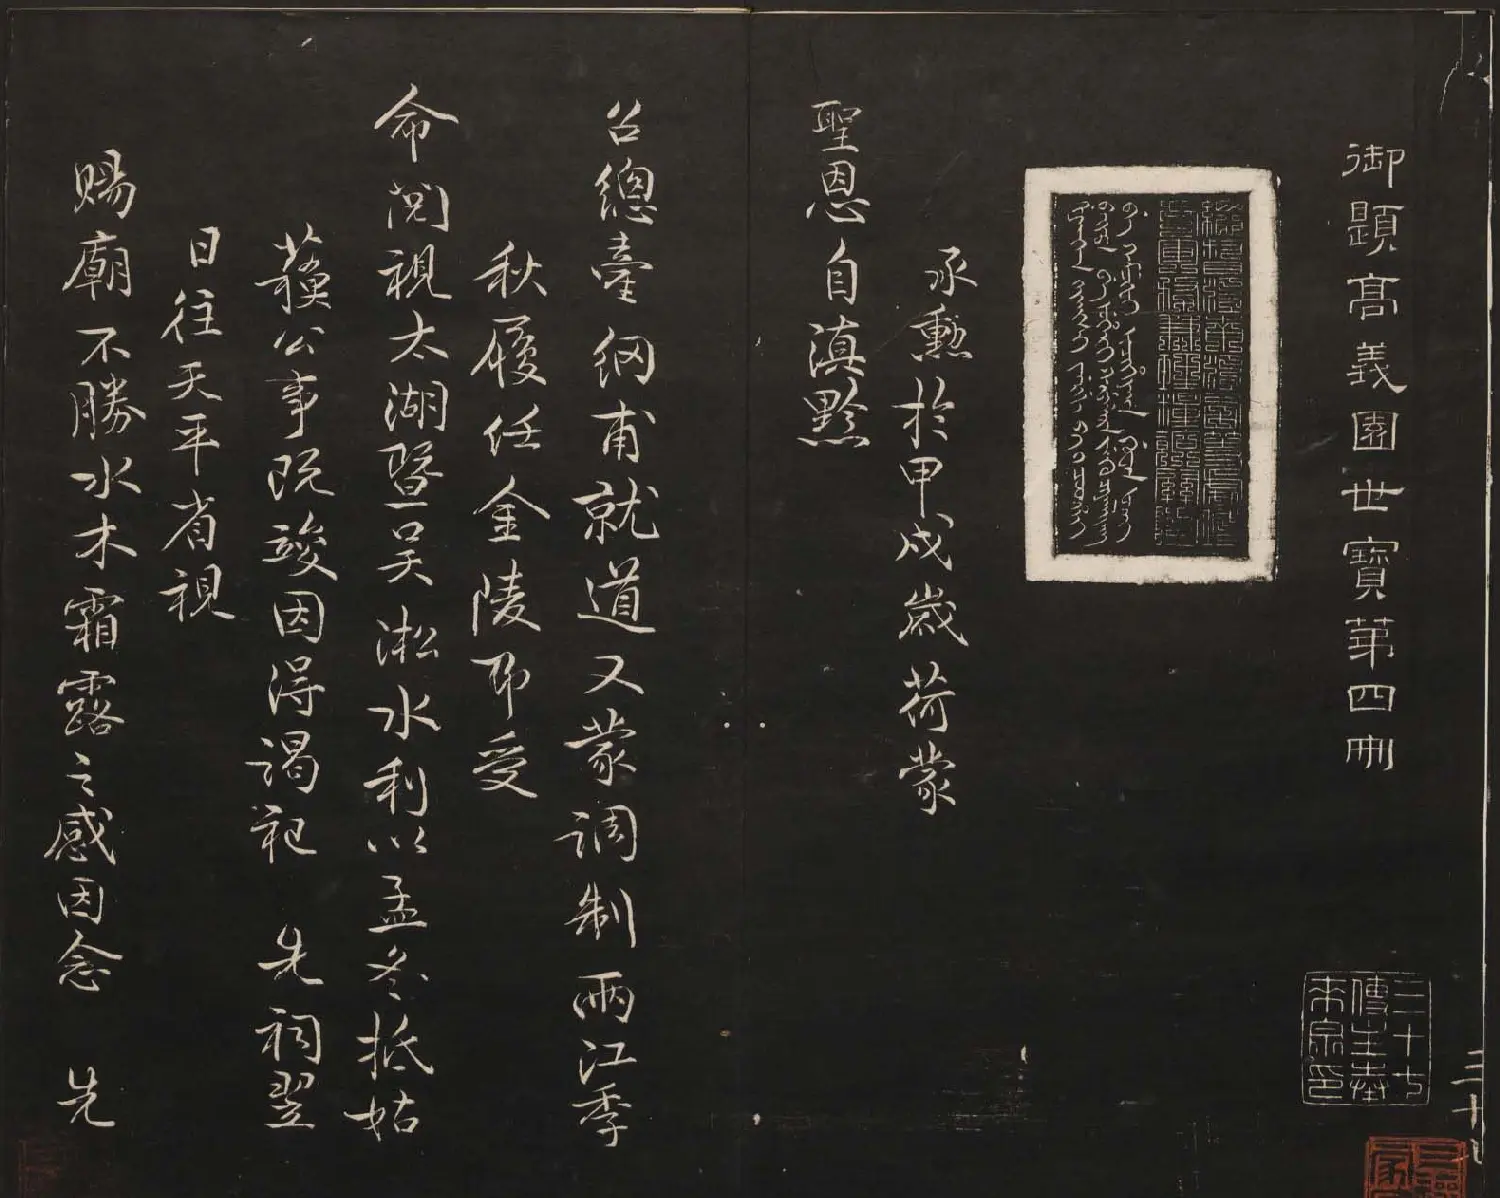 御題高義園世寶第四冊
承勳於甲戌歲荷蒙
聖恩自滇黔
召總臺綱甫就道又蒙調制兩江季
秋履任金陵即受
命閱視太湖暨吳淞水利以孟冬抵姑
蘓公事既竣因得謁祀 先祠翌
日往天平省視
賜廟不勝水木霜露之感因念 先